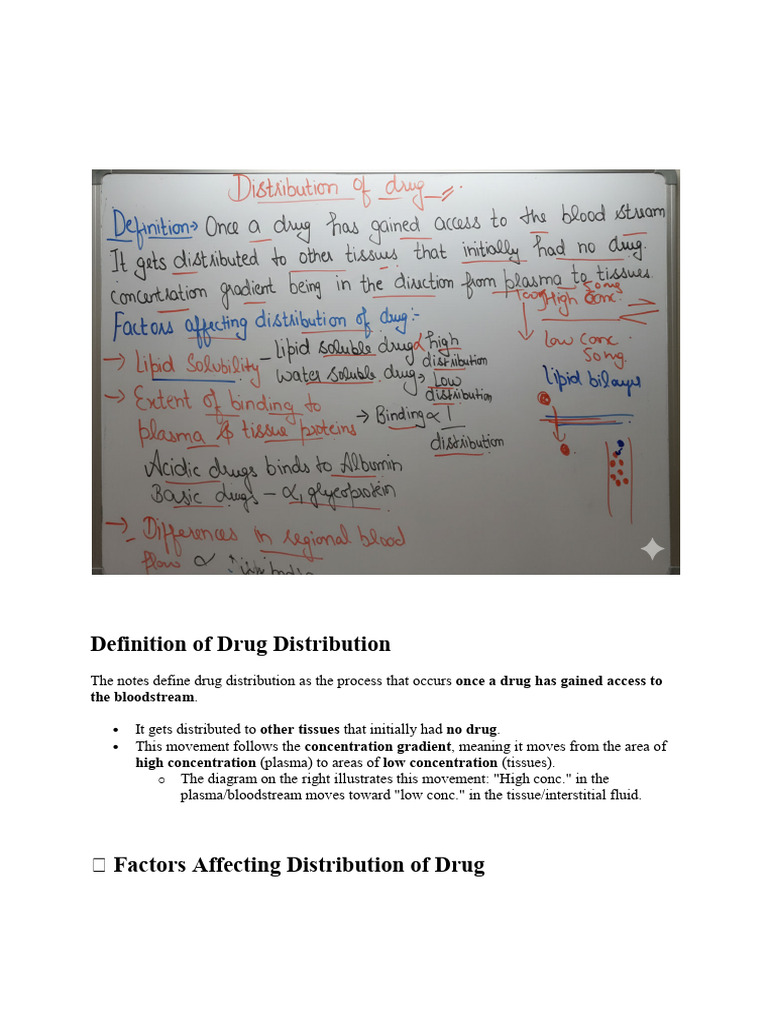 Distribution of drug
Definition→ Once a drug has gained access to the blood stream
It gets distributed to other tissues that initially had no drug.
concentration gradient being in the direction from plasma to tissues.
High conc.
50mg
low conc.
50mg.
lipid bilayer
Factors affecting distribution of drug:-
→ Lipid Solubility – lipid soluble drug ∝ high
distribution
water soluble drug→ Low
distribution
→ Extent of binding to
plasma & tissue proteins
→ Binding ∝ 1
distribution
Acidic drugs binds to Albumin
Basic drugs – α, glycoprotein
→ Differences in regional blood
flow ∝
Definition of Drug Distribution
The notes define drug distribution as the process that occurs once a drug has gained access to
the bloodstream.
• It gets distributed to other tissues that initially had no drug.
• This movement follows the concentration gradient, meaning it moves from the area of
high concentration (plasma) to areas of low concentration (tissues).
o The diagram on the right illustrates this movement: "High conc." in the
plasma/bloodstream moves toward "low conc." in the tissue/interstitial fluid.
Factors Affecting Distribution of Drug